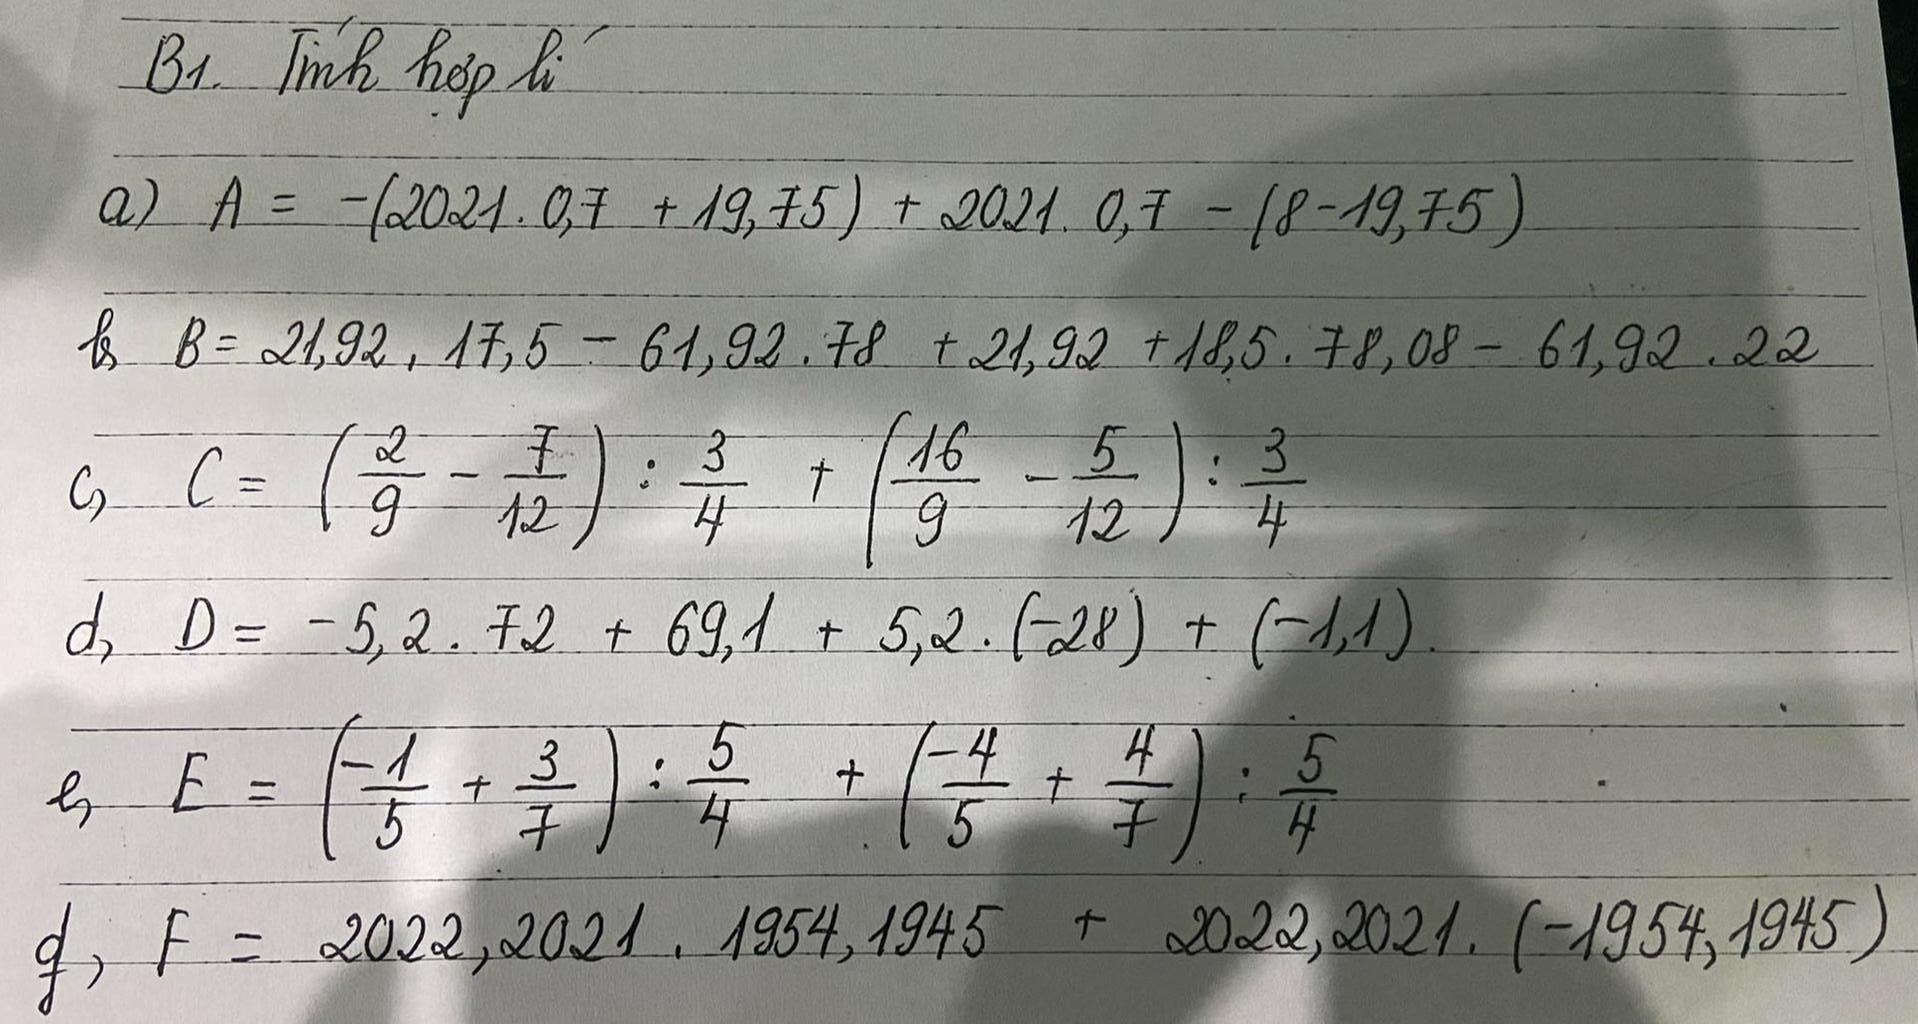 B1. Tính hợp lí
a) A = -(2021. 0,7 + 19,75) + 2021. 0,7 - (8-19,75)
b, B = 21,92. 17,5 - 61,92. 78 + 21,92 + 18,5. 78,08 - 61,92. 22
c, C = (2/9 - 7/12) : 3/4 + (16/9 - 5/12) : 3/4
d, D = -5,2. 72 + 69,1 + 5,2. (-28) + (-1,1).
e, E = (-1/5 + 3/7) : 5/4 + (-4/5 + 4/7) : 5/4
g, F = 2022,2021. 1954,1945 + 2022,2021. (-1954,1945)